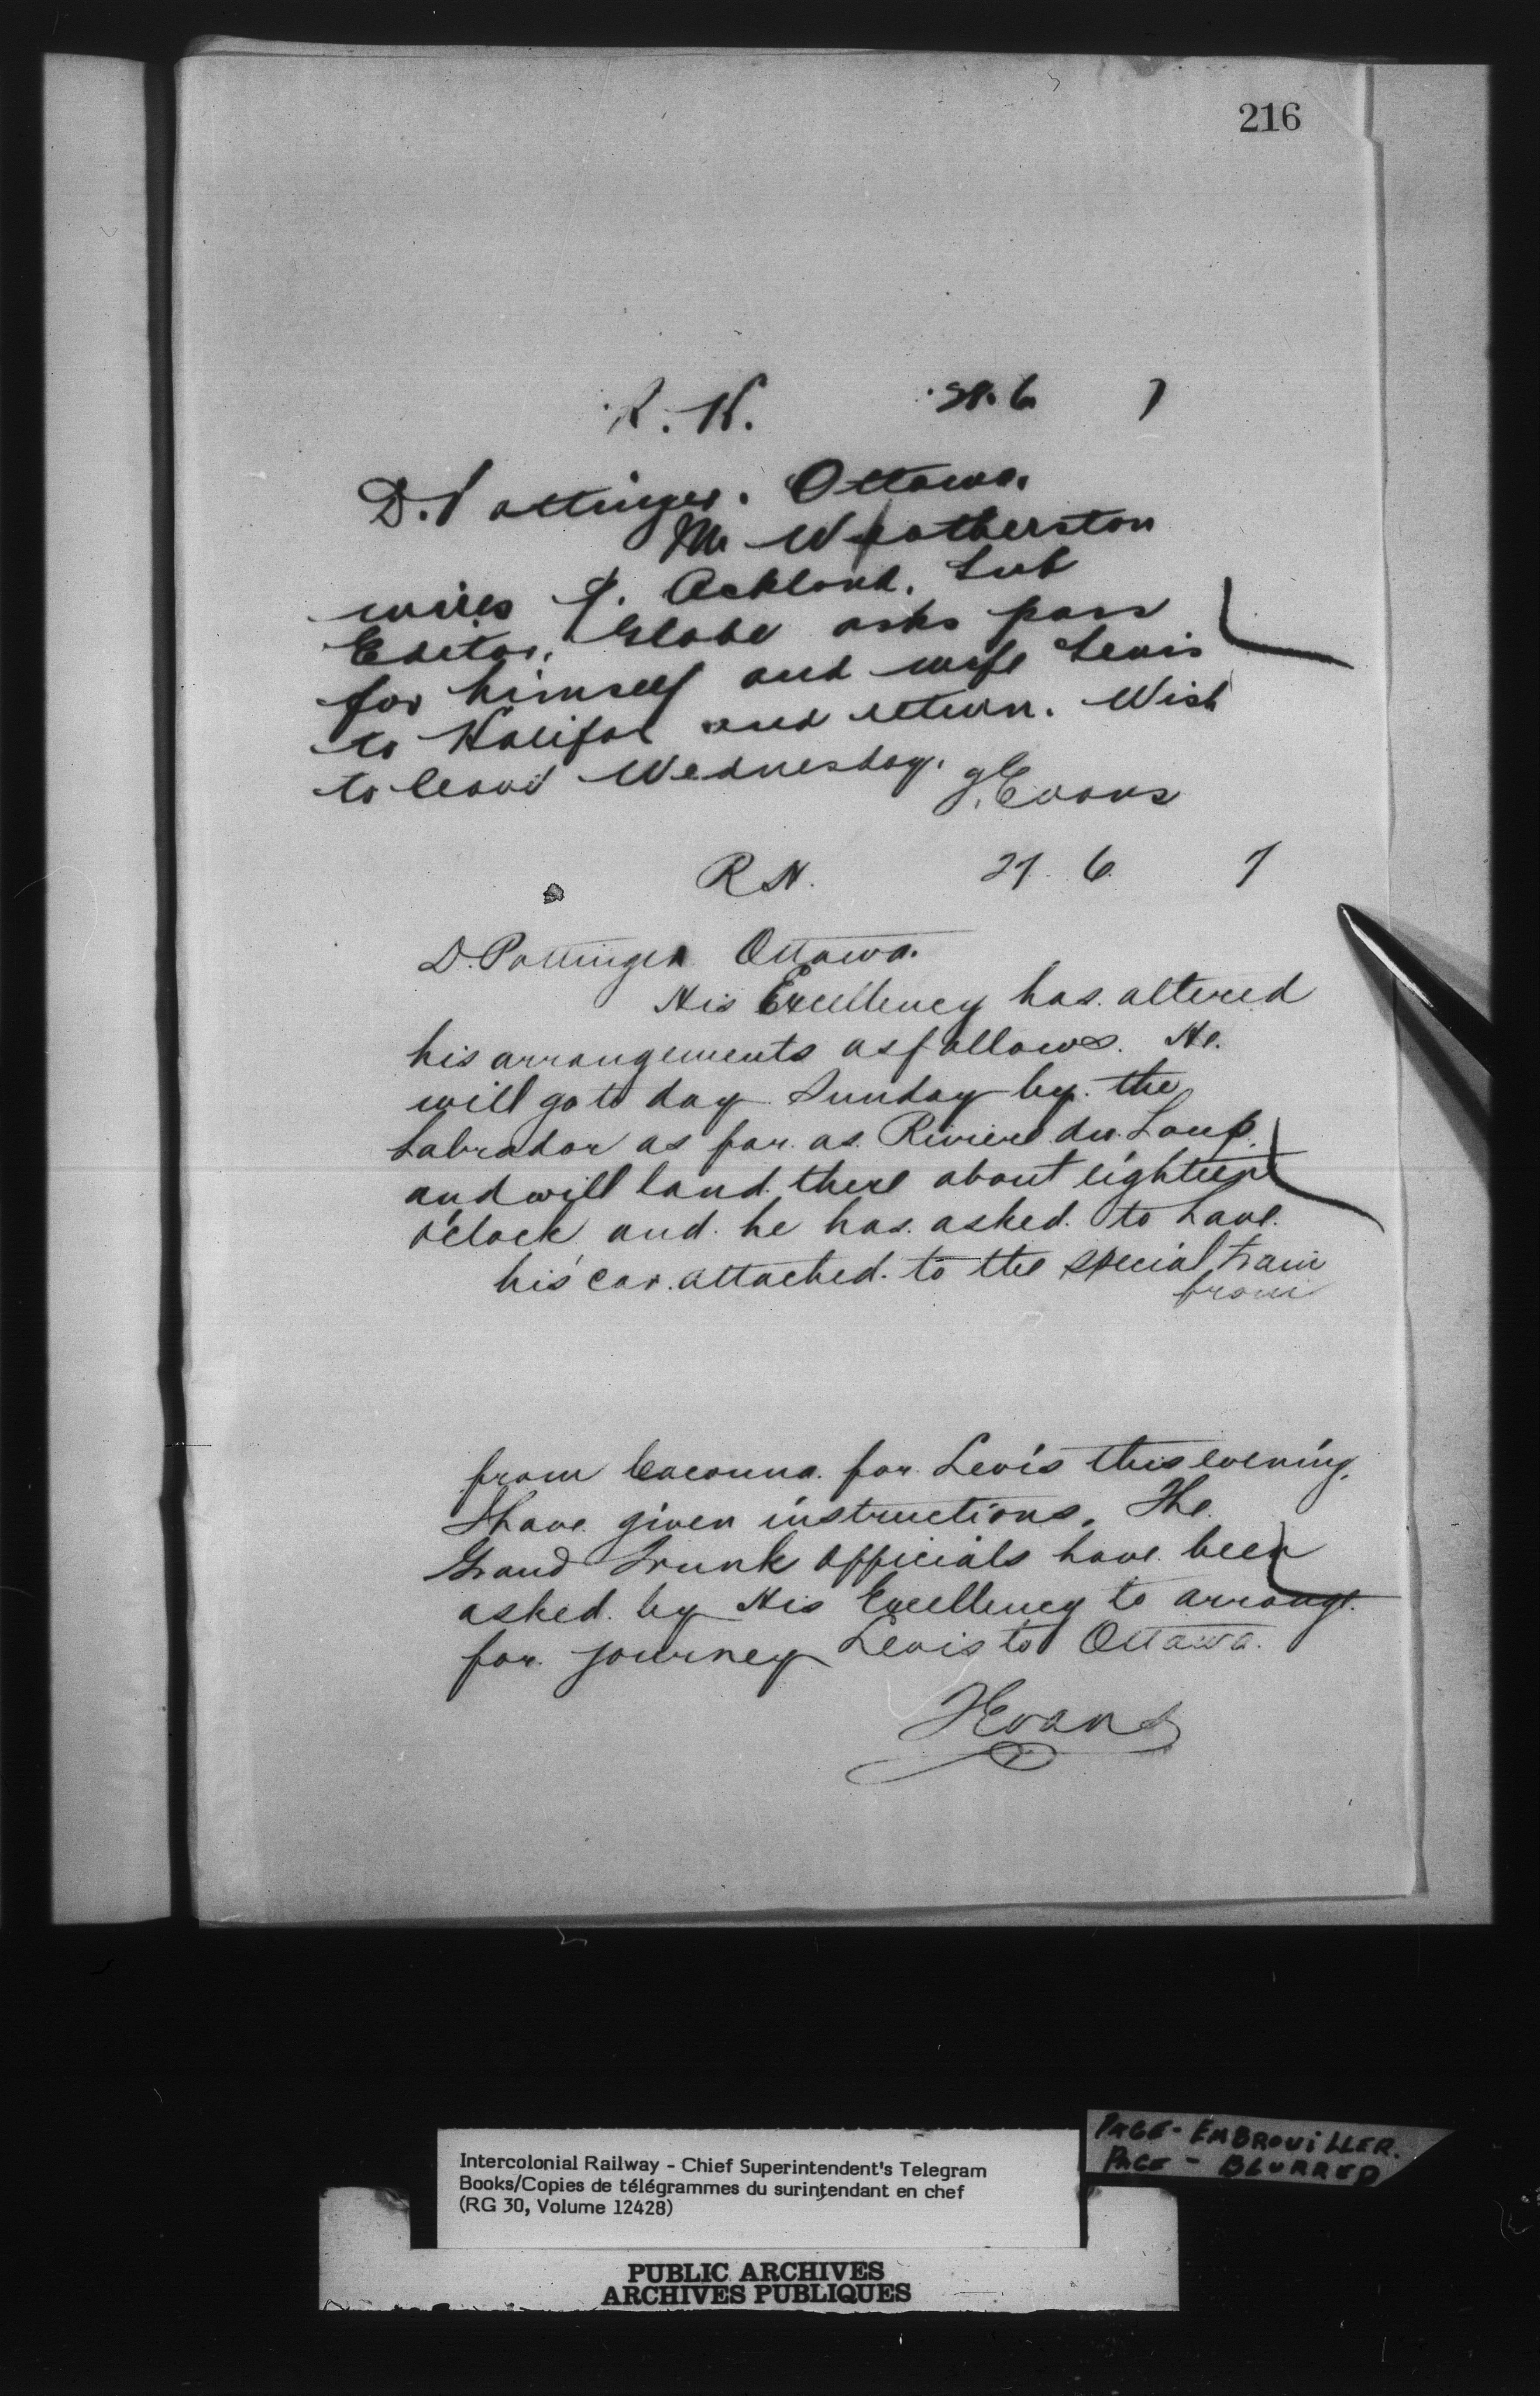 216
R. N. 28. 6 7
D. Pottinger. Ottawa.
Mr Weatherston
wires J. Ackland. Sub
Editor, Globe asks pass
for himself and wife Levis
to Halifax and return. Wish
to leave Wednesday.
J. Evans
R N. 27. 6. 7
D. Pottinger Ottawa.
His Excellency has altered
his arrangements as follows. He
will go to day Sunday by the
Labrador as far as Riviere du Loup
and will land there about eighteen
o'clock and he has asked to have
his car attached to the special train
from
from Cacouna for Levis this evening.
I have given instructions. The
Grand Trunk officials have been
asked by His Excellency to arrange
for journey Levis to Ottawa.
J Evans
Intercolonial Railway - Chief Superintendent's Telegram
Books/Copies de télégrammes du surintendant en chef
(RG 30, Volume 12428)
PAGE - EMBROUILLER.
PAGE - BLURRED
PUBLIC ARCHIVES
ARCHIVES PUBLIQUES